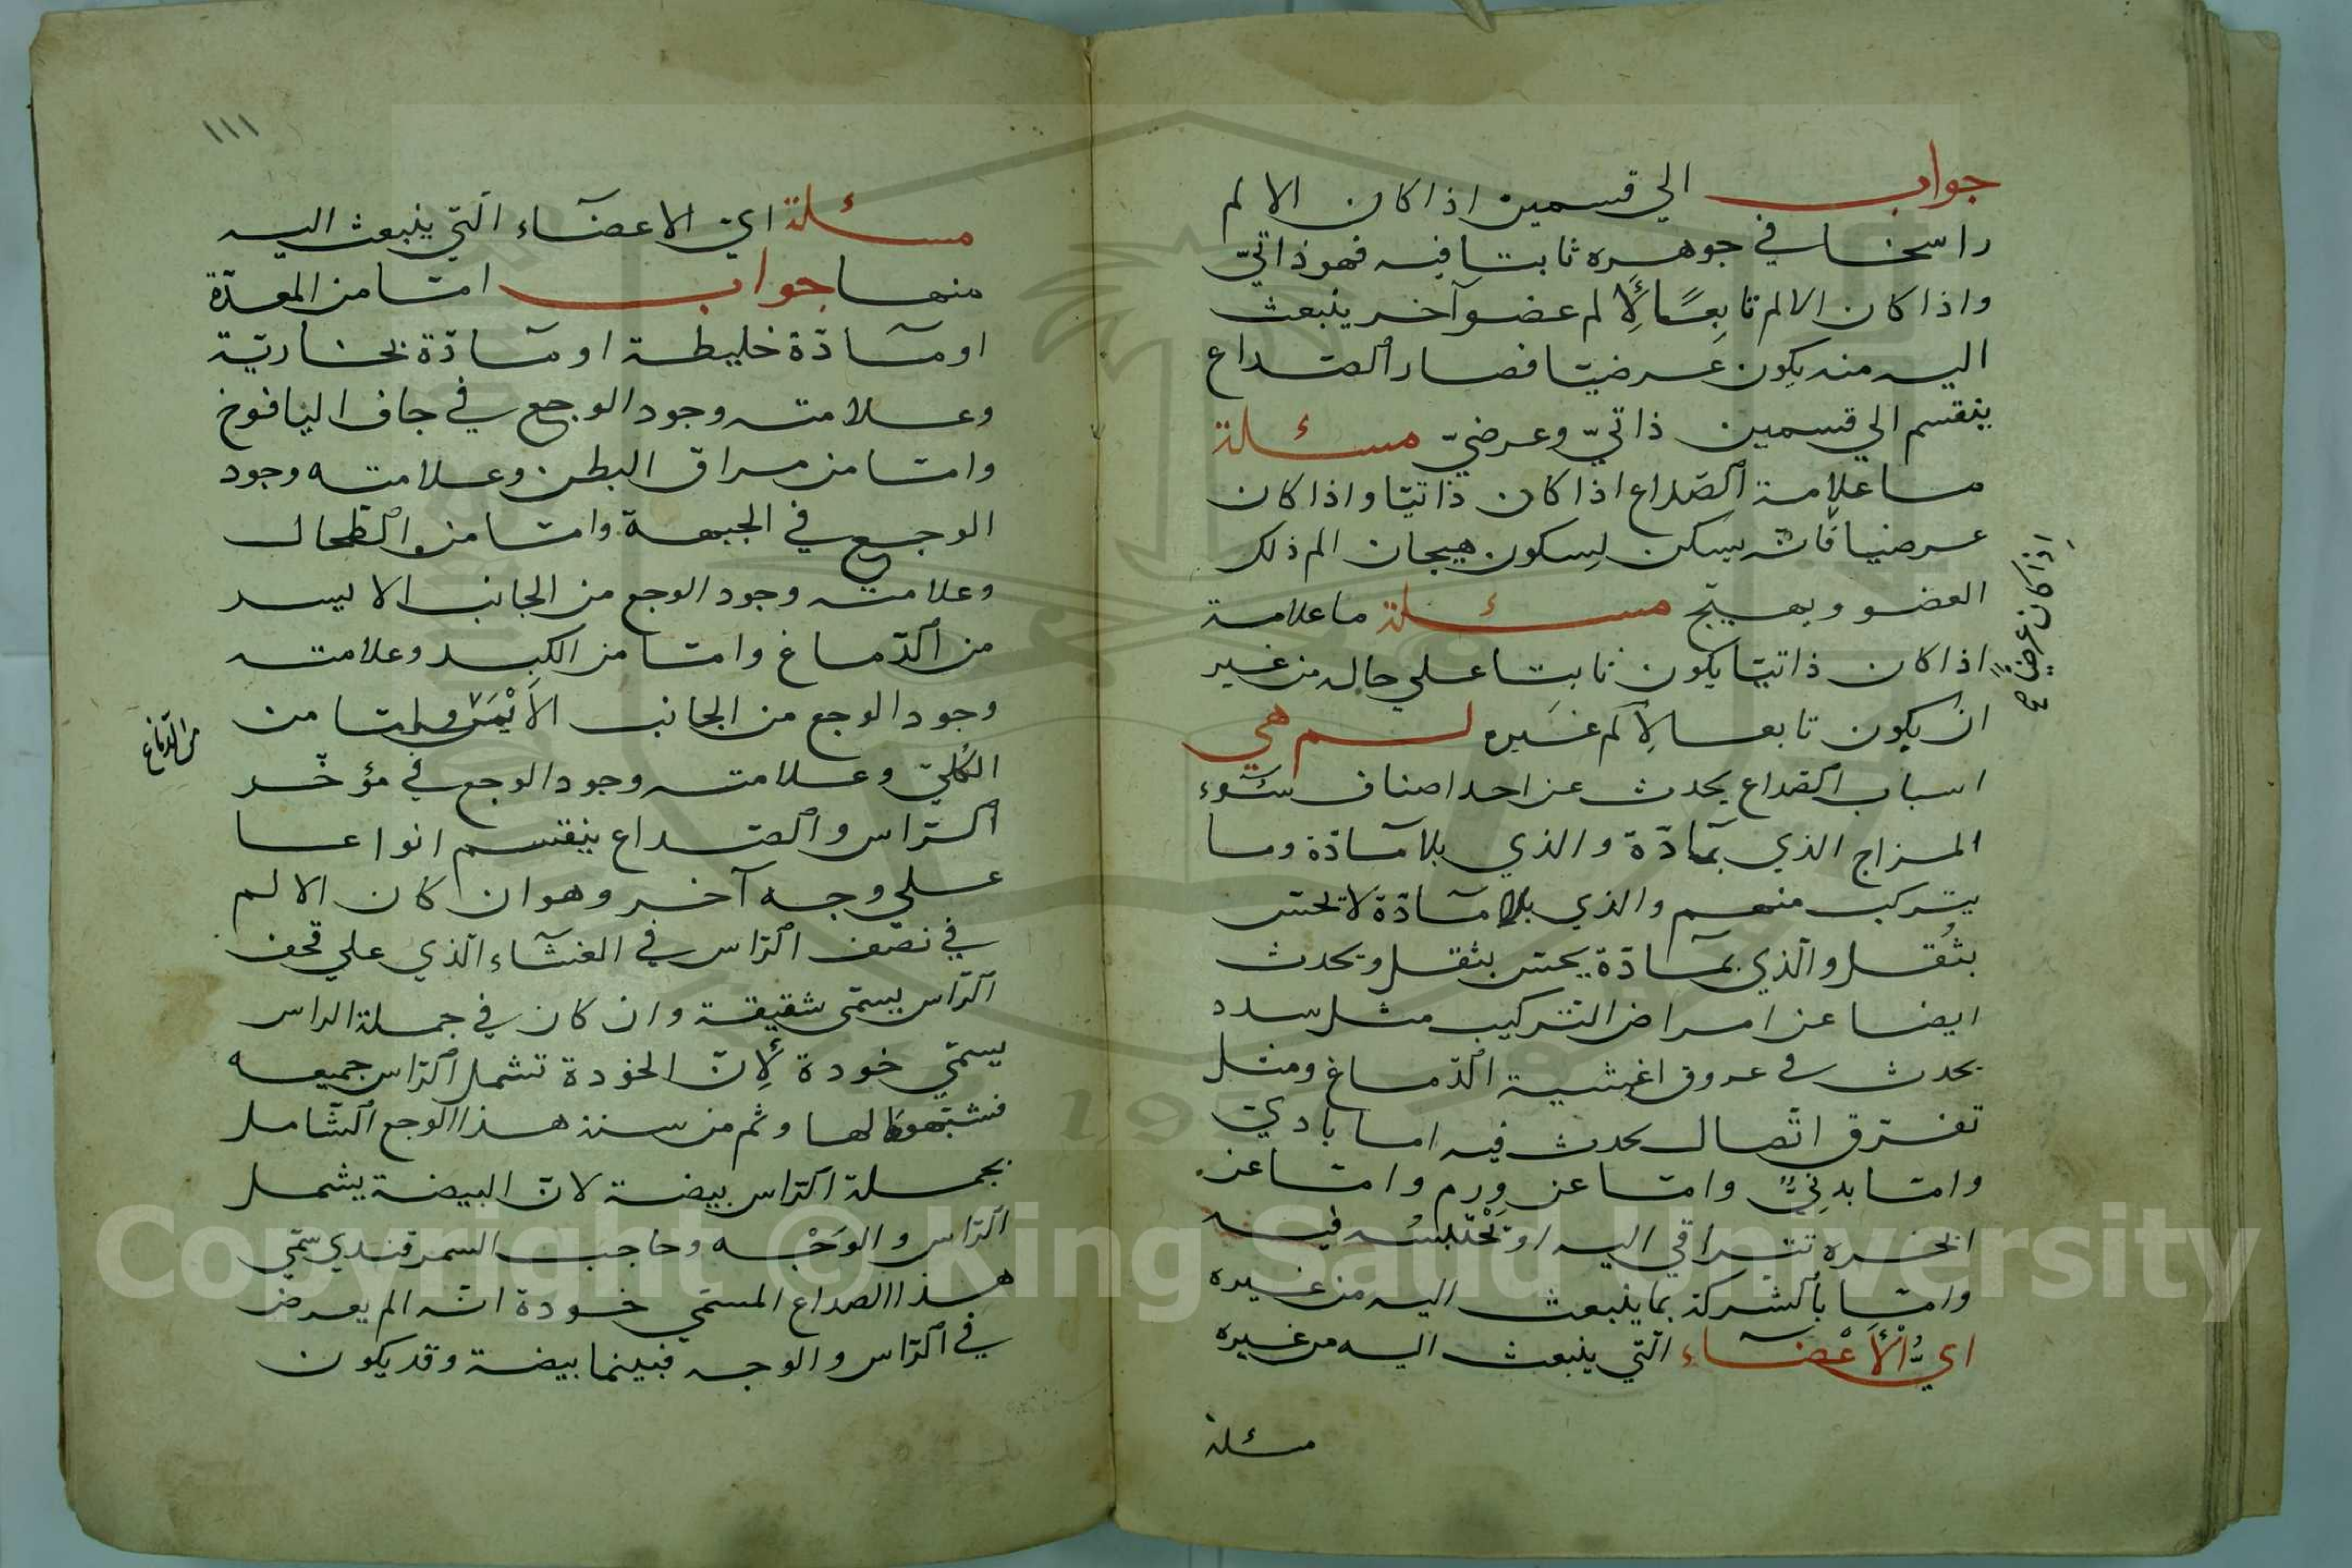 جواب الي قسمين اذا كان الالم
راسخا في جوهره ثابتا فيه فهو ذاتيّ
واذا كان الالم تابعًا لِأَلم عضو آخر ينبعث
اليه منه يكون عرضيّا فصار الصّداع
ينقسم الي قسمين ذاتيّ وعرضيّ مسئلة
ما علامة الصّداع اذا كان ذاتيّا واذا كان
عرضيا فانّه يسكن لِسكون هيجان الم ذلك
العضو ويهيّج مسئلة ما علامة
اذا كان ذاتيّا يكون ثابتا علي حاله من غير
ان يكون تابعا لِأَلم غَيره لم هي
اسباب الصّداع يحدث عن احد اصناف سُوء
المزاج الذي بمّادّة والذي بلا مآدّة وما
يتركب منهم والذي بلا مآدّة لا تحسّ
بثُقل والّذي بمآدّة يحسّ بثقل ويحدث
ايضا عن امراض التركيب مثل سدد
يحدث في عروق اغشية الدّماغ ومثل
تفرّق اتّصال يحدث فيه اما بادي
وامّا بدنِيٌّ وامّا عن وِرم وامّا عن
ابخره تتراقي اليه او تَحْتبسُه فيه
وامّا بالشركة بما ينبعث اليه من غيره
ايُّ الْأَعْضآء الّتي ينبعث اليه من غيره
مسئلة
اذا كان عرضيّاً صح
١١١
مسئلة ايّ الاعضآء الّتي ينبعث اليه
منها جواب امّا من المعدّة
او مآدّة خليطة او مآدّة بخاريّة
وعلامته وجود الوجع في جاف اليافوخ
وامّا من مراق البطن وعلامته وجود
الوجع في الجبهة وامّا من الطّحال
وعلامته وجود الوجع من الجانب الايسر
من الدّماغ وامّا من الكبد وعلامته
وجود الوجع من الجانب الأَيْمَن وامّا من
الكُليّ وعلامته وجود الوجع في مؤخّر
الرّاس والصّداع ينقسم انواعا
علي وجه آخر وهو ان كان الالم
في نصّف الرّاس في الغشآء الّذي علي قحف
الرّاس يسمّى شقيقة وان كان في جملة الراس
يسمّي خودة لِأنّ الخودة تشمل الرّاس جميعه
فشبّهوها لها وثم من سنذ هذا الوجع الشّامل
بجملة الرّاس بيضة لانّ البيضة يشمل
الرّاس والوَجْه وصاحب السمرقندي سمّي
هذا الصداع المسمّي خودة انّه الم يعرض
في الرّاس والوجه فبينما بيضة وقد يكون
من الدّماغ
Copyright © King Saud University